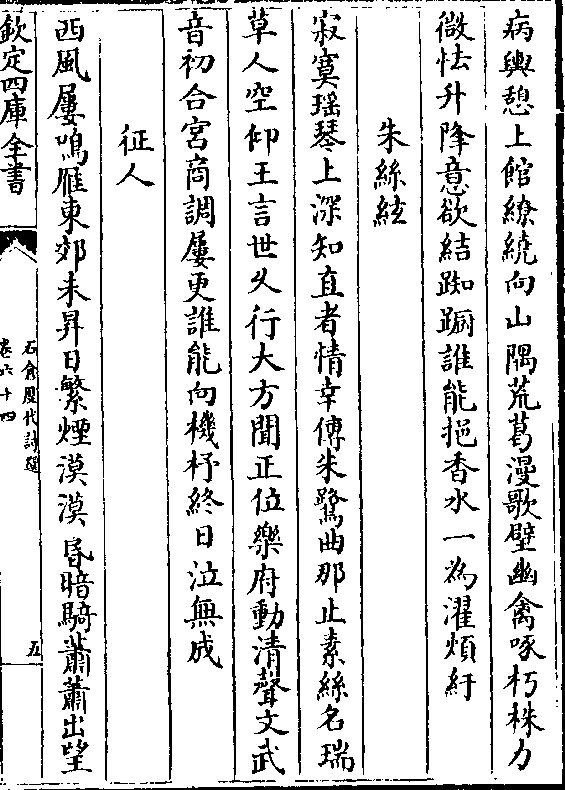 病輿憩上館繚繞向山隅荒葛漫歌壁幽禽啄朽株力
微怯升降意欲結踟蹰誰能挹香水一為濯煩紆
朱絲絃
寂寞瑶琴上深知直者情幸傳朱鷺曲那止素絲名瑞
草人空仰王言世久行大方聞正位樂府動清聲文武
音初合宮商調屢更誰能向機杼終日泣無成
征人
西風屢鳴雁東郊未昇日繁煙漠漠昏暗騎蕭蕭出望
欽定四庫全書
石倉歷代詩選
卷六十四
五